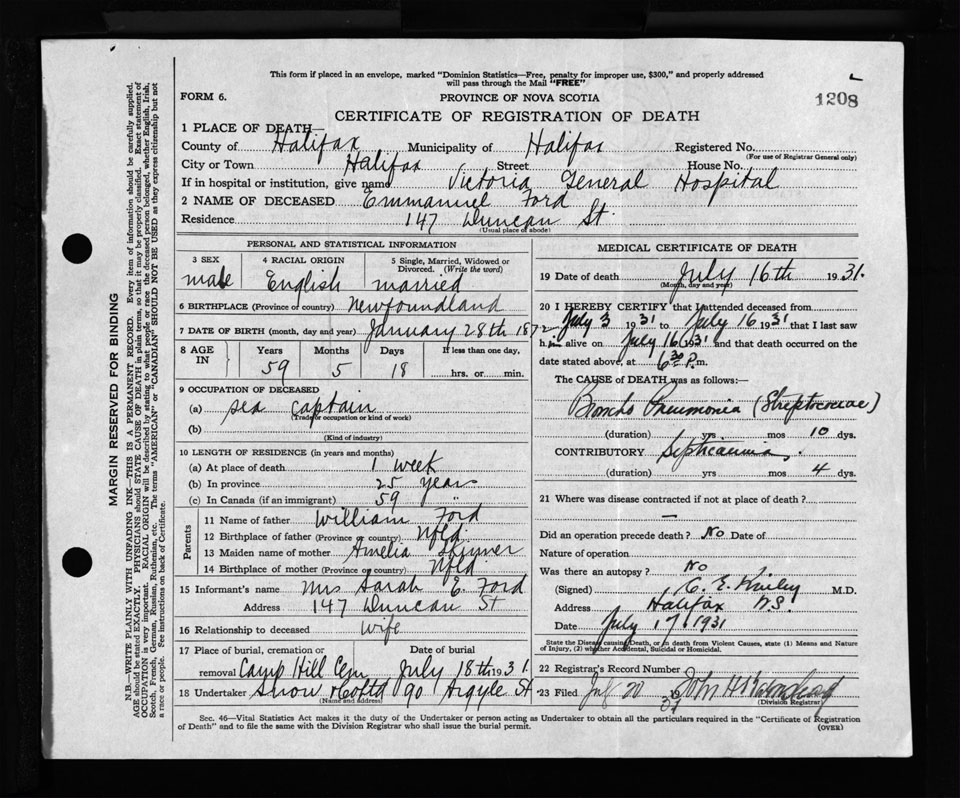 This form if placed in an envelope, marked "Dominion Statistics—Free, penalty for improper use, $300," and properly addressed
will pass through the Mail "FREE"
FORM 6.
PROVINCE OF NOVA SCOTIA
1208
CERTIFICATE OF REGISTRATION OF DEATH
1 PLACE OF DEATH—
County of Halifax Municipality of Halifax Registered No.
(For use of Registrar General only)
City or Town Halifax Street House No.
If in hospital or institution, give name Victoria General Hospital
2 NAME OF DECEASED Emmanuel Ford
Residence 147 Duncan St.
(Usual place of abode)
PERSONAL AND STATISTICAL INFORMATION
3 SEX male
4 RACIAL ORIGIN English
5 Single, Married, Widowed or Divorced. (Write the word) married
6 BIRTHPLACE (Province or country) Newfoundland
7 DATE OF BIRTH (month, day and year) January 28th 1872
8 AGE IN Years Months Days If less than one day,
59 5 18 hrs. or min.
9 OCCUPATION OF DECEASED
(a) sea captain
(Trade, occupation or kind of work)
(b)
(Kind of industry)
10 LENGTH OF RESIDENCE (in years and months)
(a) At place of death 1 week
(b) In province 25 years
(c) In Canada (if an immigrant) 59 "
Parents
11 Name of father William Ford
12 Birthplace of father (Province or country) Nfld.
13 Maiden name of mother Amelia Skinner
14 Birthplace of mother (Province or country) Nfld.
15 Informant's name Mrs Sarah E. Ford
Address 147 Duncan St
16 Relationship to deceased wife
17 Place of burial, cremation or Date of burial
removal Camp Hill Cem July 18th 1931.
18 Undertaker Snow & Co Ltd 90 Argyle St
(Name and address)
MEDICAL CERTIFICATE OF DEATH
19 Date of death July 16th 1931.
(Month, day and year)
20 I HEREBY CERTIFY that I attended deceased from
July 3 1931 to July 16 1931 that I last saw
him alive on July 16 1931 and that death occurred on the
date stated above, at 6 30 P.m.
The CAUSE OF DEATH was as follows:—
Broncho Pneumonia (Streptococcae)
(duration) yrs mos 10 dys.
CONTRIBUTORY Septicaemia.
(duration) yrs mos 4 dys.
21 Where was disease contracted if not at place of death?
—
Did an operation precede death? No Date of
Nature of operation
Was there an autopsy? No
(Signed) C. E. M.D.
Address Halifax N.S.
Date July 17 1931
State the Disease causing Death, or in death from Violent Causes, state (1) Means and Nature
of Injury, (2) whether Accidental, Suicidal or Homicidal.
22 Registrar's Record Number
23 Filed July 20 John H
(Division Registrar)
Sec. 46—Vital Statistics Act makes it the duty of the Undertaker or person acting as Undertaker to obtain all the particulars required in the "Certificate of Registration
of Death" and to file the same with the Division Registrar who shall issue the burial permit.
(OVER)
MARGIN RESERVED FOR BINDING
N.B.—WRITE PLAINLY WITH UNFADING INK—THIS IS A PERMANENT RECORD. Every item of information should be carefully supplied.
AGE should be stated EXACTLY. PHYSICIANS should STATE CAUSE OF DEATH in plain terms, so that it may be properly classified. Exact statement of
OCCUPATION is very important. RACIAL ORIGIN will be described by stating to what people or race the deceased person belonged, whether English, Irish,
Scotch, French, German, Russian, Ruthenian, etc. The terms "AMERICAN" or "CANADIAN" SHOULD NOT BE USED as they express citizenship but not
a race or people. See instructions on back of Certificate.